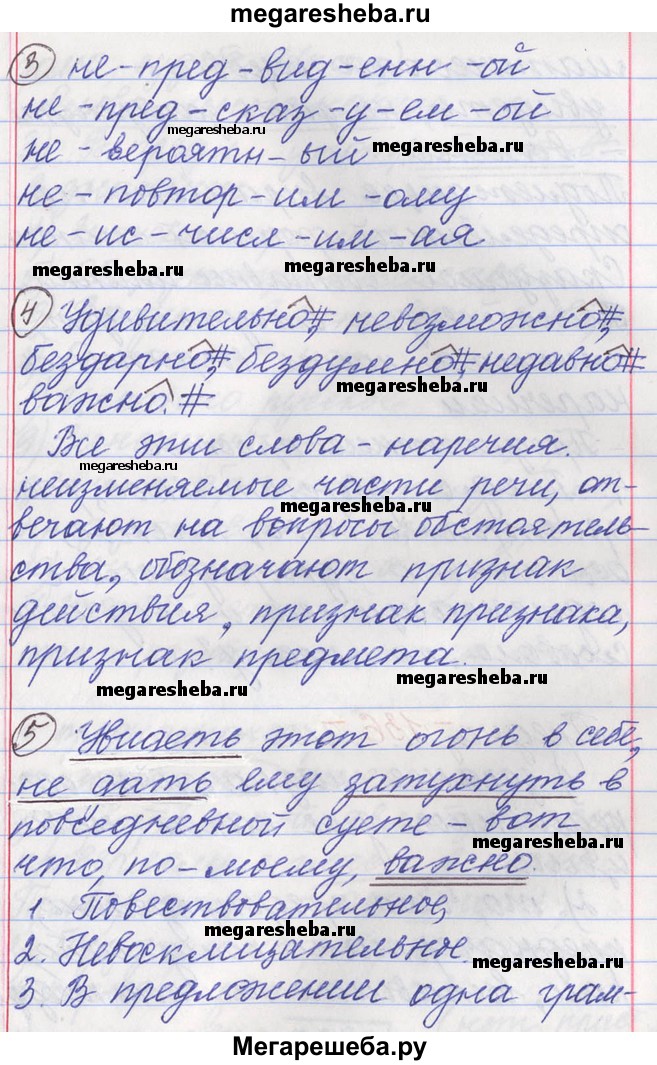 megaresheba.ru
3 не-пред-вид-енн-ой
не-пред-сказ-у-ем-ой
megaresheba.ru
не-вероятн-ый
megaresheba.ru
не-повтор-им-ому
не-ис-числ-им-ая
megaresheba.ru
megaresheba.ru
4 Удивительно#, невозможно#,
бездарно#, бездумно#, недавно#
megaresheba.ru
важно.#
Все эти слова - наречия.
megaresheba.ru
неизменяемые части речи, от-
megaresheba.ru
вечают на вопросы обстоятель-
ства, обозначают признак
действия, признак признака,
признак предмета.
megaresheba.ru
megaresheba.ru
5 Увидеть этот огонь в себе,
не дать ему затухнуть в
повседневной суете - вот
что, по-моему, важно.
1 Повествовательное,
megaresheba.ru
2. Невосклицательное.
megaresheba.ru
3. В предложении одна грам-
Мегарешеба.ру